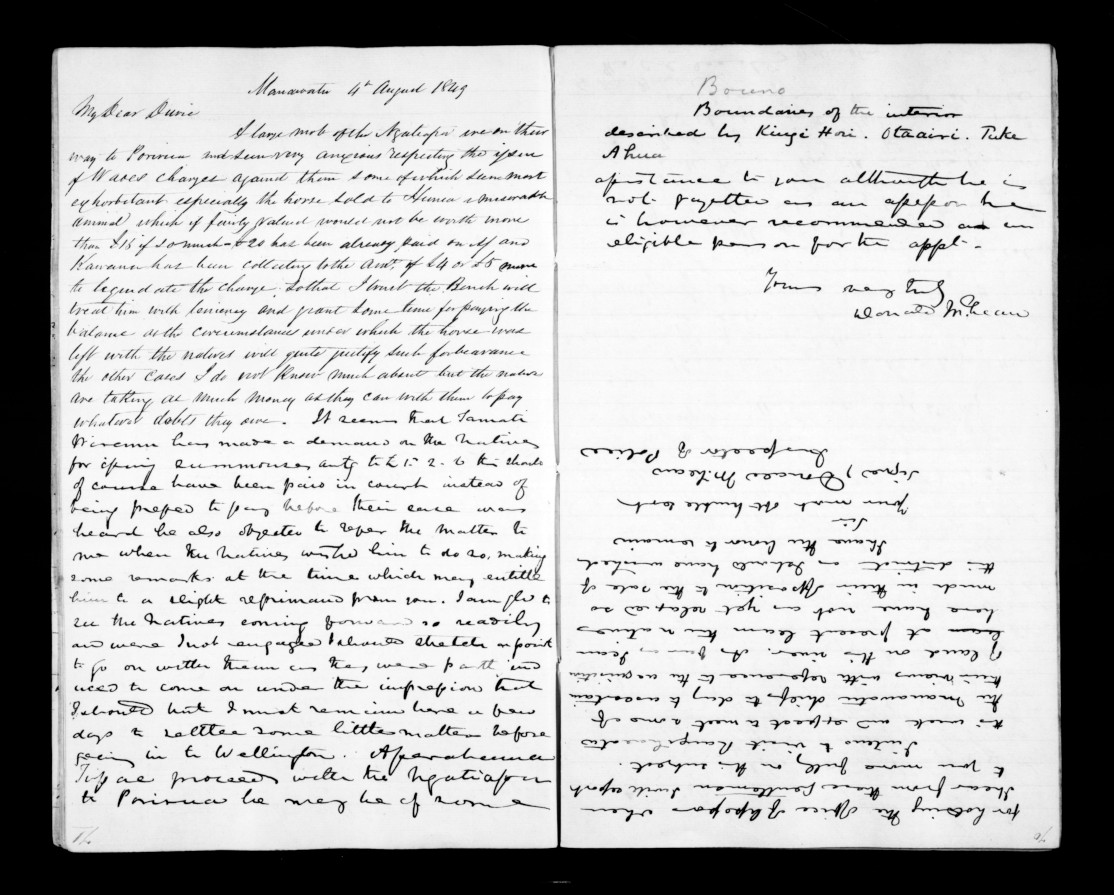 Manawatu 4th August 1849
My Dear Durie
A large mob of the Ngatiapa are on their
way to Porirua and seem very anxious respecting the issue
of Wades charges against them some of which seem most
exhorbitant especially the horse sold to Hunia a miserable
animal which if fairly valued would not be worth more
than £15 if so much - £20 has been already paid on it and
Kawana has been collecting to the amt. of £4 or £5 more
to liquidate the charge, so that I trust the Bench will
treat him with leniency and grant some time for paying the
balance as the circumstances under which the horse was
left with the natives will quite justify such forbearance
the other cases I do not know much about but the natives
are taking as much money as they can with them to pay
whatever debts they owe. It seems that Tamati
Wiremu has made a demand on the Natives
for issuing summonses
of course have been paid in court instead of
being pressed to pay before their case was
heard he also objected to refer the matter to
me when the Natives wished him to do so, making
some remarks at the time which may entitle
him to a slight reprimand from you. I am glad to
see the Natives coming forward so readily
and were I not engaged I should stretch a point
to go on with them as they were partly
used to come on under the impression that
I should but I must remain here a few
days to settle some little matters before
going in to Wellington. Aperahama
Tipae proceeds with the Ngatiapa
to Porirua he may be of some
Bound
Boundaries of the interior
described by Kingi Hori. Otaairi. Tuke
Ahua
assistance to you although he is
not gazetted as an assessor he
is however recommended as an
eligible person for the appt.
Yours very truly
Donald McLean
for holding the office of assessor when
I hear from these Gentlemen I will report
to you more fully on this subject.
I intend to visit Rangitikei
this week and expect to meet some of
the Manawatu chiefs to day to ascertain
their views with reference to the acquisition
of land on this river. As far as I can
learn at present the natives
here have not as yet relaxed so
much in their opposition to the sale of
this district as I should have wished
I have the honor to remain
Sir
Your most obt humble servt
Signed, Donald McLean
Inspector of Police